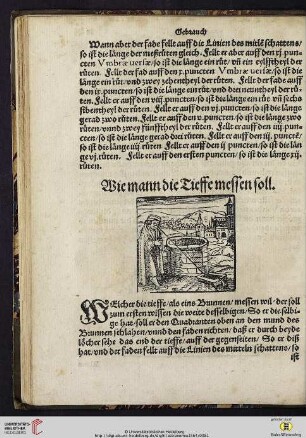 Gebrauch
Wann aber der fade fellt auff die Linien des mitlē schattens/
so ist die länge der messruten gleich. Fellt er aber auff den xj. pun-
cten Vmbræ versæ/so ist die länge ein růt/ vñ ein eylfftheyl der
růten. Fellt der fad auff den x. puncten Vmbræ versæ/so ist die
länge ein růt/vnd zwey zehentheyl der růten. Fellt der fade auff
den ix. puncten/so ist die länge ein růte/vnd drei neuntheyl der rů-
ten. Fellt er auff den viij. puncten/so ist die länge ein růt
sibentheyl der růten. Fellt er auff den vj. puncten/so ist die länge
gerad zwo růten. Fellt er auff den v. puncten/so ist die länge zwo
růten/vnnd zwey fünfftheyl der růten. Fellt er auff den iiij. pun-
cten/so ist die länge gerad drei růten. Fellt er auff den iij. punctē/
so ist die länge iiij růten. Fellt er auff den ij puncten/so ist die län
ge vj. růten. Fellt er auff den ersten puncten/so ist die länge xij.
růten.
Wie mann die Tieffe messen soll.
WElcher die tieffe/als eins Brunnen/messen wil/der soll
zum ersten wissen die weite desselbigen/So er die selbi-
ge hat/soll er den Quadranten oben an den mund des
Brunnen schlahen/vnnd den faden richten/daß er durch beyde
löcher sehe das end der tieffe/auff der gegenseiten/So er diß
hat/vnd der faden fellt auff die Linien des mitteln schattens/so
ist
UNIVERSITÄTS-
BIBLIOTHEK
HEIDELBERG
© Universitätsbibliothek Heidelberg
Baden-Württemberg